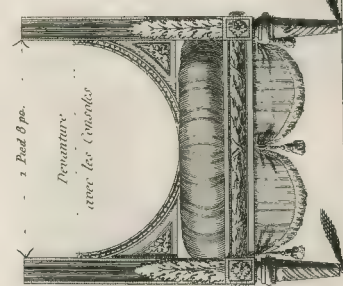 1 Pied 8 po.
Devanture
avec les Consoles